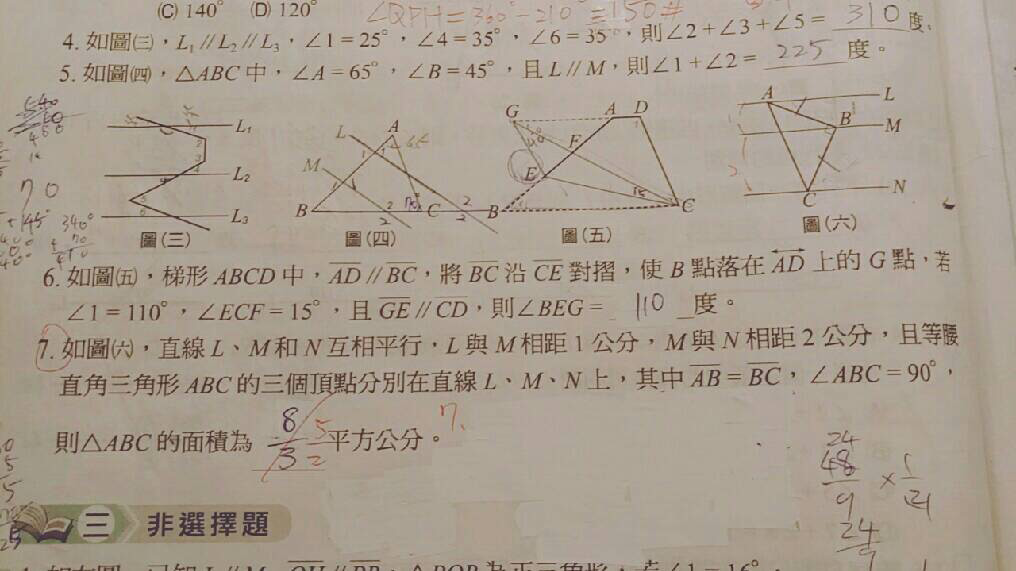 (C) 140° (D) 120°
∠QPH=360°-210°=150°#
4. 如圖㈢，L₁//L₂//L₃，∠1=25°，∠4=35°，∠6=35°，則∠2+∠3+∠5= 310 度。
5. 如圖㈣，△ABC 中，∠A=65°，∠B=45°，且 L//M，則∠1+∠2= 225 度。
L₁
L₂
L₃
圖(三)
L
A
M
B
C
圖(四)
G
A
D
F
E
B
C
圖(五)
A
L
B
M
C
N
圖(六)
6. 如圖㈤，梯形 ABCD 中，AD//BC，將 BC 沿 CE 對摺，使 B 點落在 AD 上的 G 點，若
∠1=110°，∠ECF=15°，且 GE//CD，則∠BEG= 110 度。
7. 如圖㈥，直線 L、M 和 N 互相平行，L 與 M 相距 1 公分，M 與 N 相距 2 公分，且等腰
直角三角形 ABC 的三個頂點分別在直線 L、M、N 上，其中 AB=BC，∠ABC=90°，
則△ABC 的面積為 8/3 5/2 平方公分。
7.
三 非選擇題